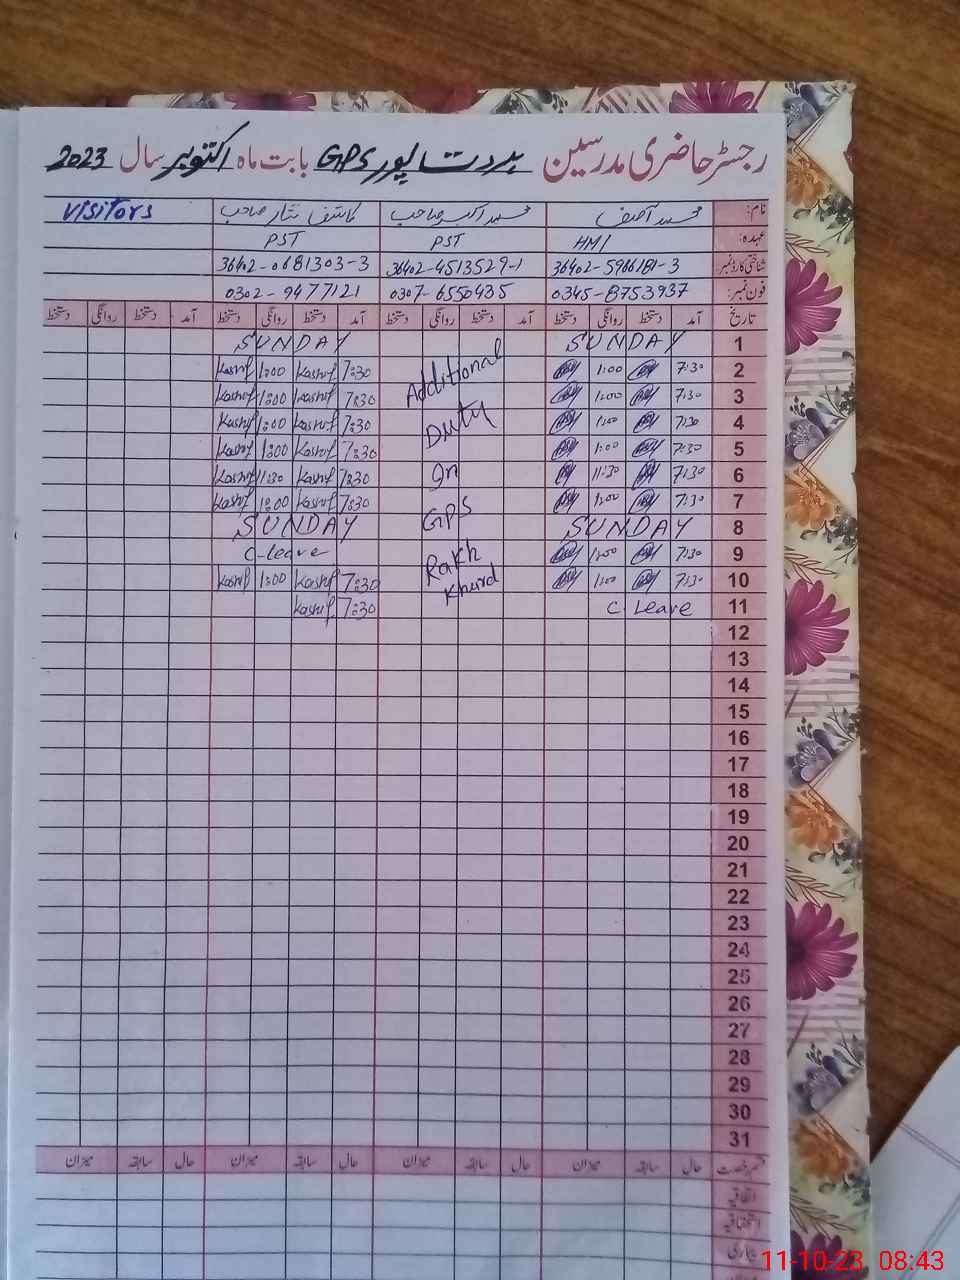 رجسٹر حاضری مدرسین GPS ہردت پور بابت ماہ اکتوبر سال 2023
نام: محمد آصف محمد اکبر صاحب کاشف نثار صاحب Visitors
عہدہ: HM PST PST
شناختی کارڈ نمبر: 36402-5966181-3 36402-4513529-1 36402-0681303-3
فون نمبر: 0345-8753937 0307-6550435 0302-9477121
تاریخ آمد دستخط روانگی دستخط آمد دستخط روانگی دستخط آمد دستخط روانگی دستخط آمد دستخط روانگی دستخط
1 SUNDAY SUNDAY
2 7:30 1:00 Additional 7:30 Kashif 1:00 Kashif
3 7:30 1:00 7:30 Kashif 1:00 Kashif
4 7:30 1:00 Duty 7:30 Kashif 1:00 Kashif
5 7:30 1:00 7:30 Kashif 1:00 Kashif
6 7:30 11:30 In 7:30 Kashif 11:30 Kashif
7 7:30 1:00 7:30 Kashif 1:00 Kashif
8 SUNDAY GPS SUNDAY
9 7:30 1:00 Rakh C-leave
10 7:30 1:00 Khurd 7:30 Kashif 1:00 Kashif
11 C. Leave 7:30 Kashif
12
13
14
15
16
17
18
19
20
21
22
23
24
25
26
27
28
29
30
31
قسم رخصت حال سابقہ میزان حال سابقہ میزان حال سابقہ میزان حال سابقہ میزان
اتفاقیہ
استحقاقیہ
بیماری
11-10-23 08:43